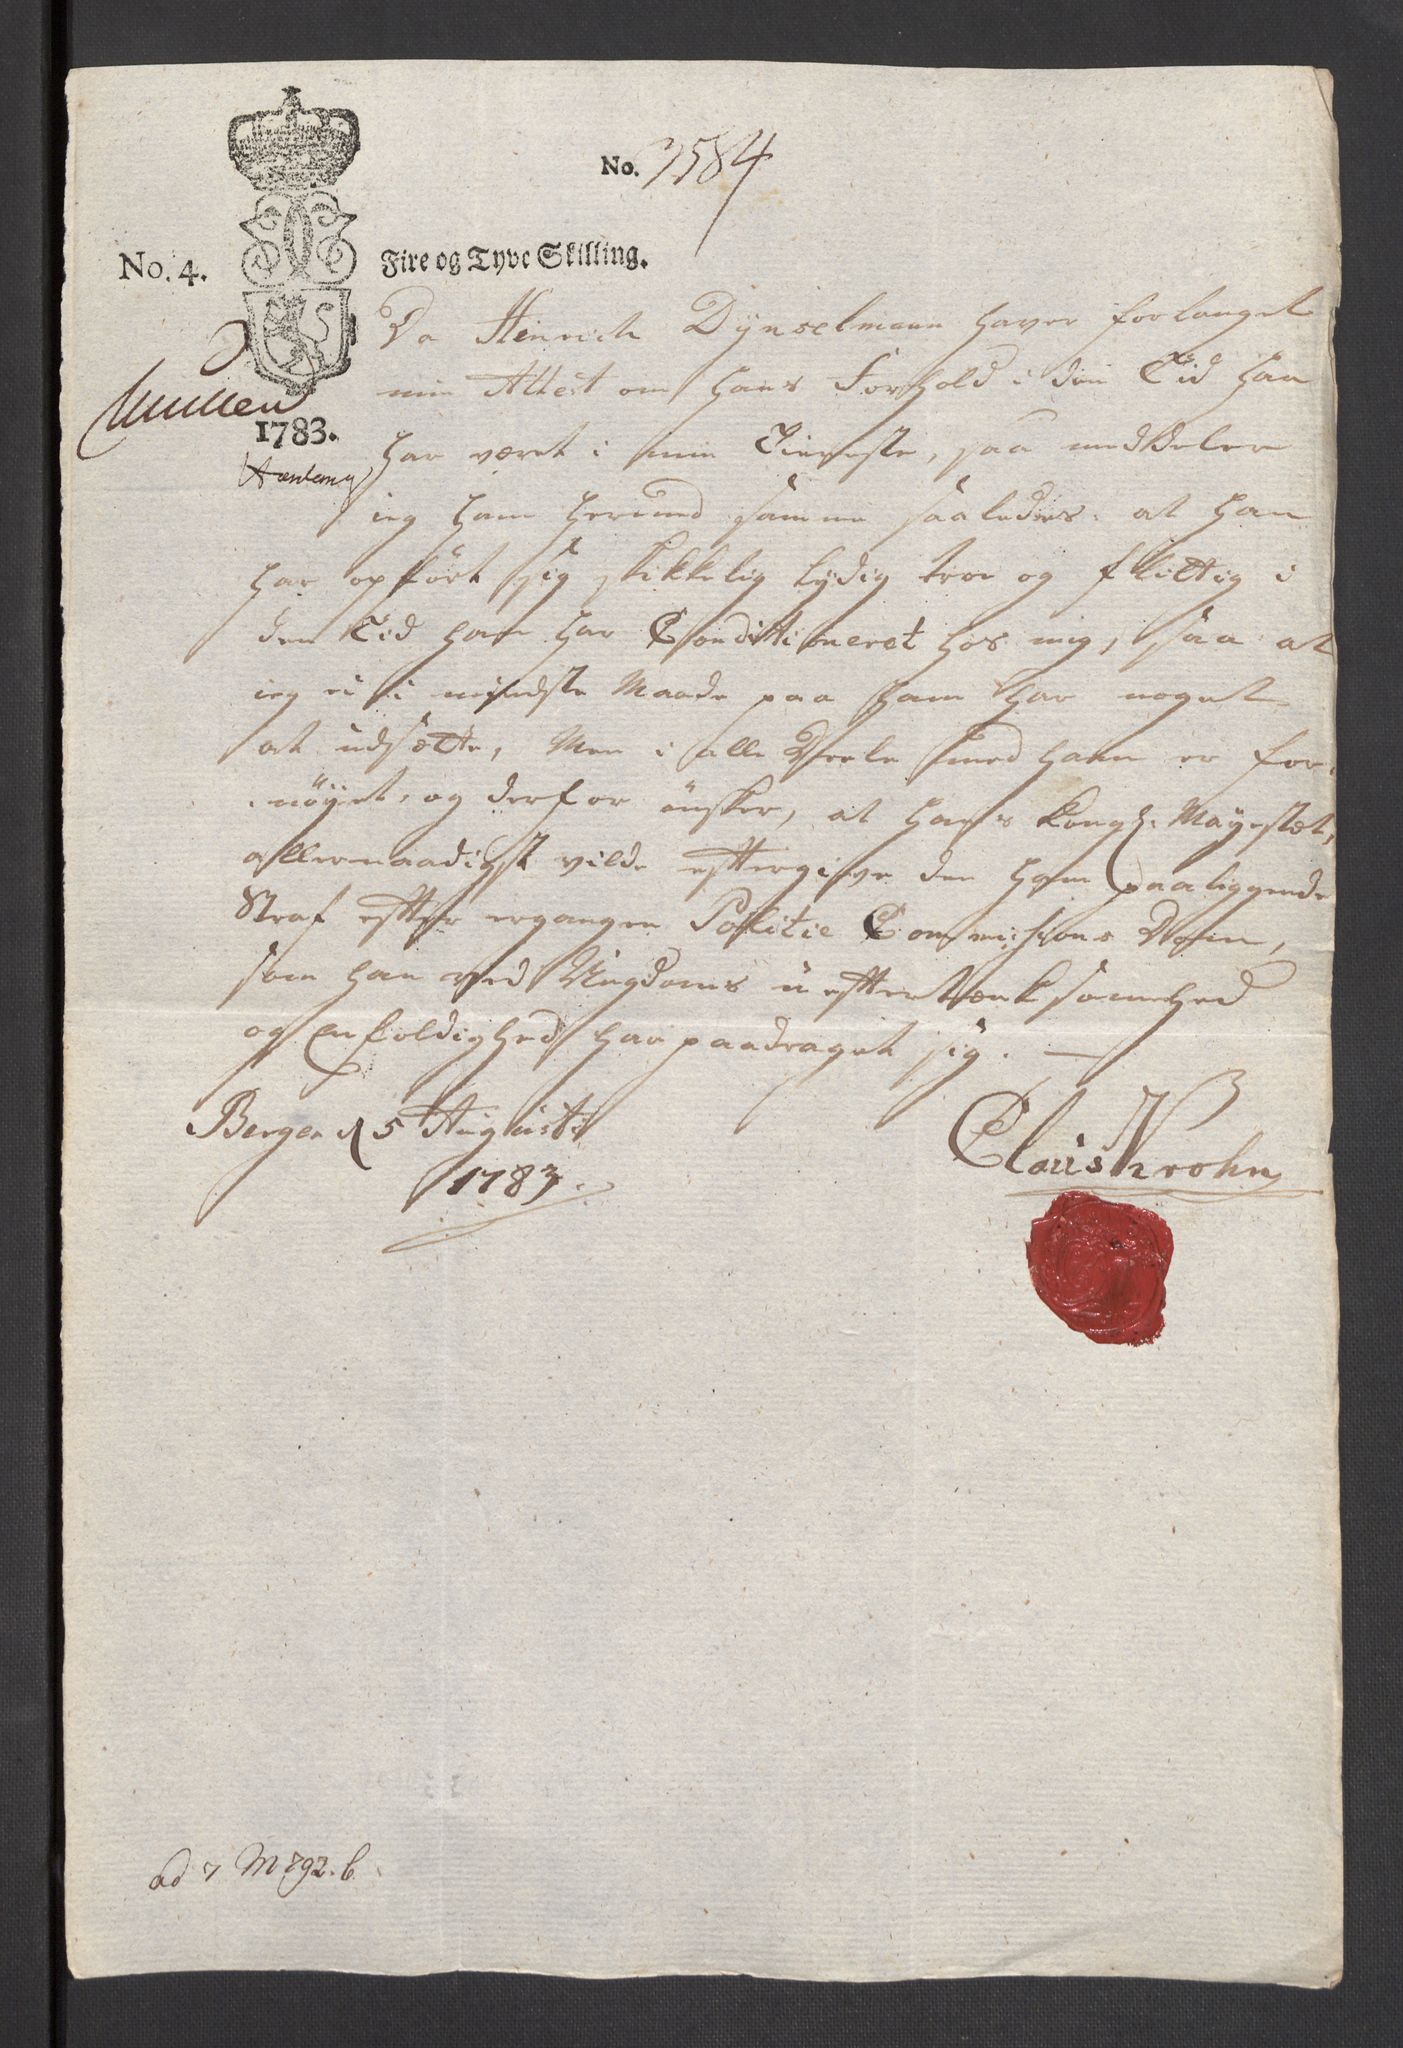 No. 3584
No. 4.
Fire og Tyve Skilling.
1783.
Da Henrich Dÿnselmann haver forlanget
min Attest om hans Forhold i den Tid han
har været i min Tieneste, saa meddeler
ieg ham herved samme saaledes: at han
har opført sig skikkelig lydig troe og flittig i
den Tid han har Condittioneret hos mig, saa at
ieg ei i mindste Maade paa ham har noget
at udsætte, Men i alle Deele med ham er for,
nøyet, og derfor ønsker, at hans Kongl: Mayestæt,
allernaadigst vilde efftergive den ham paaliggende
Straf effter ergangen Politie Commissions Dom,
som han ved Ungdoms ueffterteenksomhed
og Enfoldighed har paadraget sig. —
Bergen d 5 Augusti
1783.
Claus Krohn
ad 7 M 792. b.